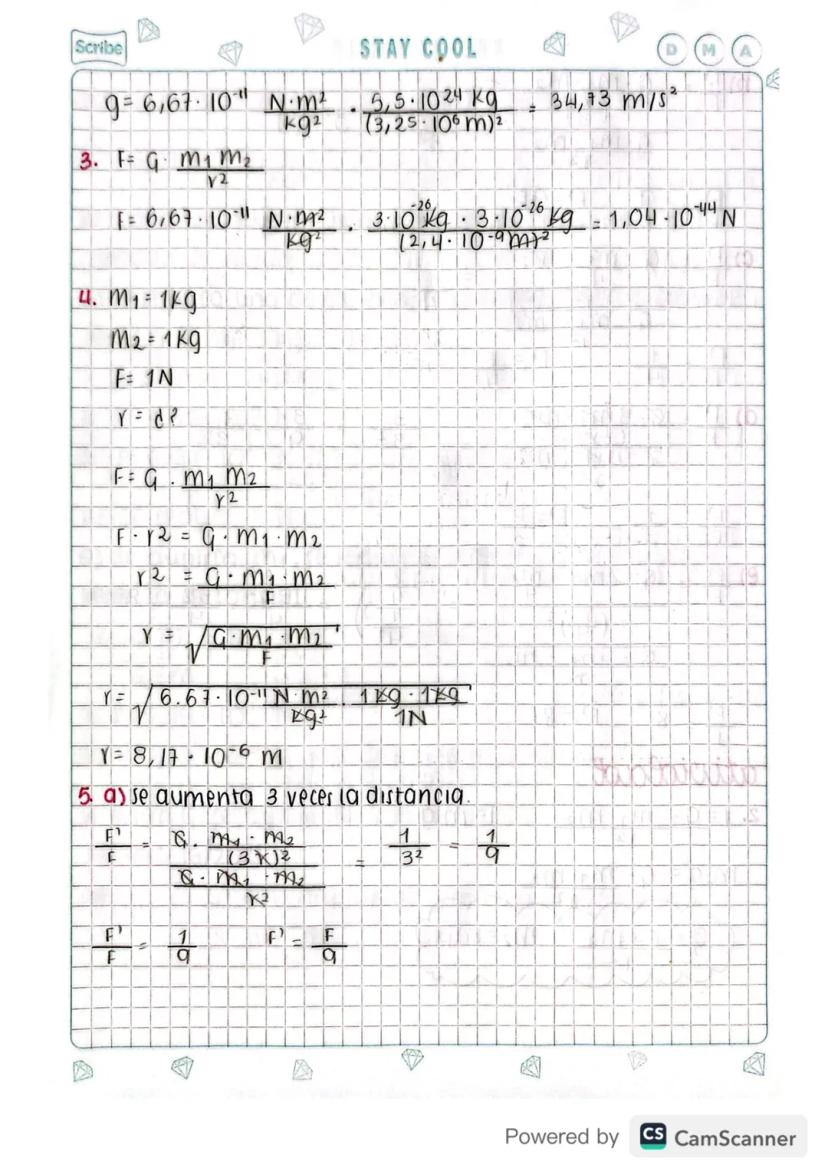 Scribe STAY COOL D M A
g = 6,67 · 10⁻¹¹ N·m²/kg² · 5,5 · 10²⁴ kg/(3,25 · 10⁶ m)² = 34,73 m/s²
3. F = G · m₁ m₂/r²
F = 6,67 · 10⁻¹¹ N·m²/kg² · 3·10⁻²⁶ kg · 3·10⁻²⁶ kg/(2,4 · 10⁻⁹ m)² = 1,04 · 10⁻⁴⁴ N
4. m₁ = 1kg
m₂ = 1kg
F = 1N
r = d?
F = G · m₁ m₂/r²
F · r2 = G · m₁ · m₂
r2 = G · m₁ · m₂/F
r = √(G · m₁ · m₂/F)
r = √(6.67 · 10⁻¹¹ N·m²/kg² · 1kg · 1kg/1N)
r = 8,17 · 10⁻⁶ m
5. a) se aumenta 3 veces la distancia.
F'/F = (G · m₁ · m₂/(3r)²)/(G · m₁ · m₂/r²) = 1/3² = 1/9
F'/F = 1/9 F' = F/9
Powered by CS CamScanner